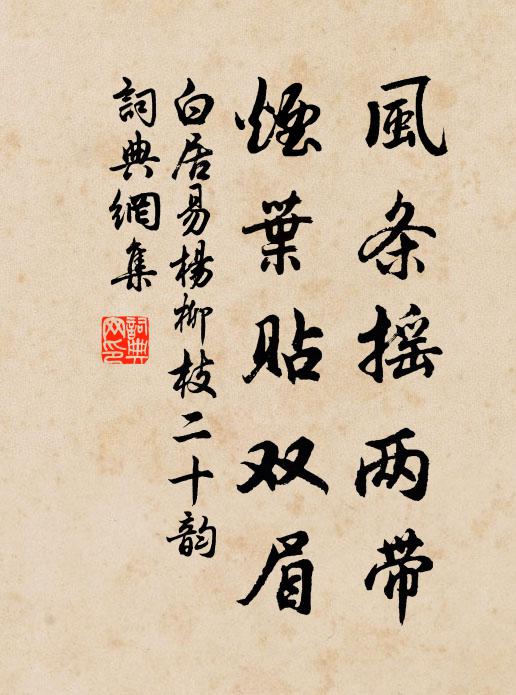 風条摇两带
煙葉貼双眉
白居易楊柳枝二十韵
詞典網集
詞典网印